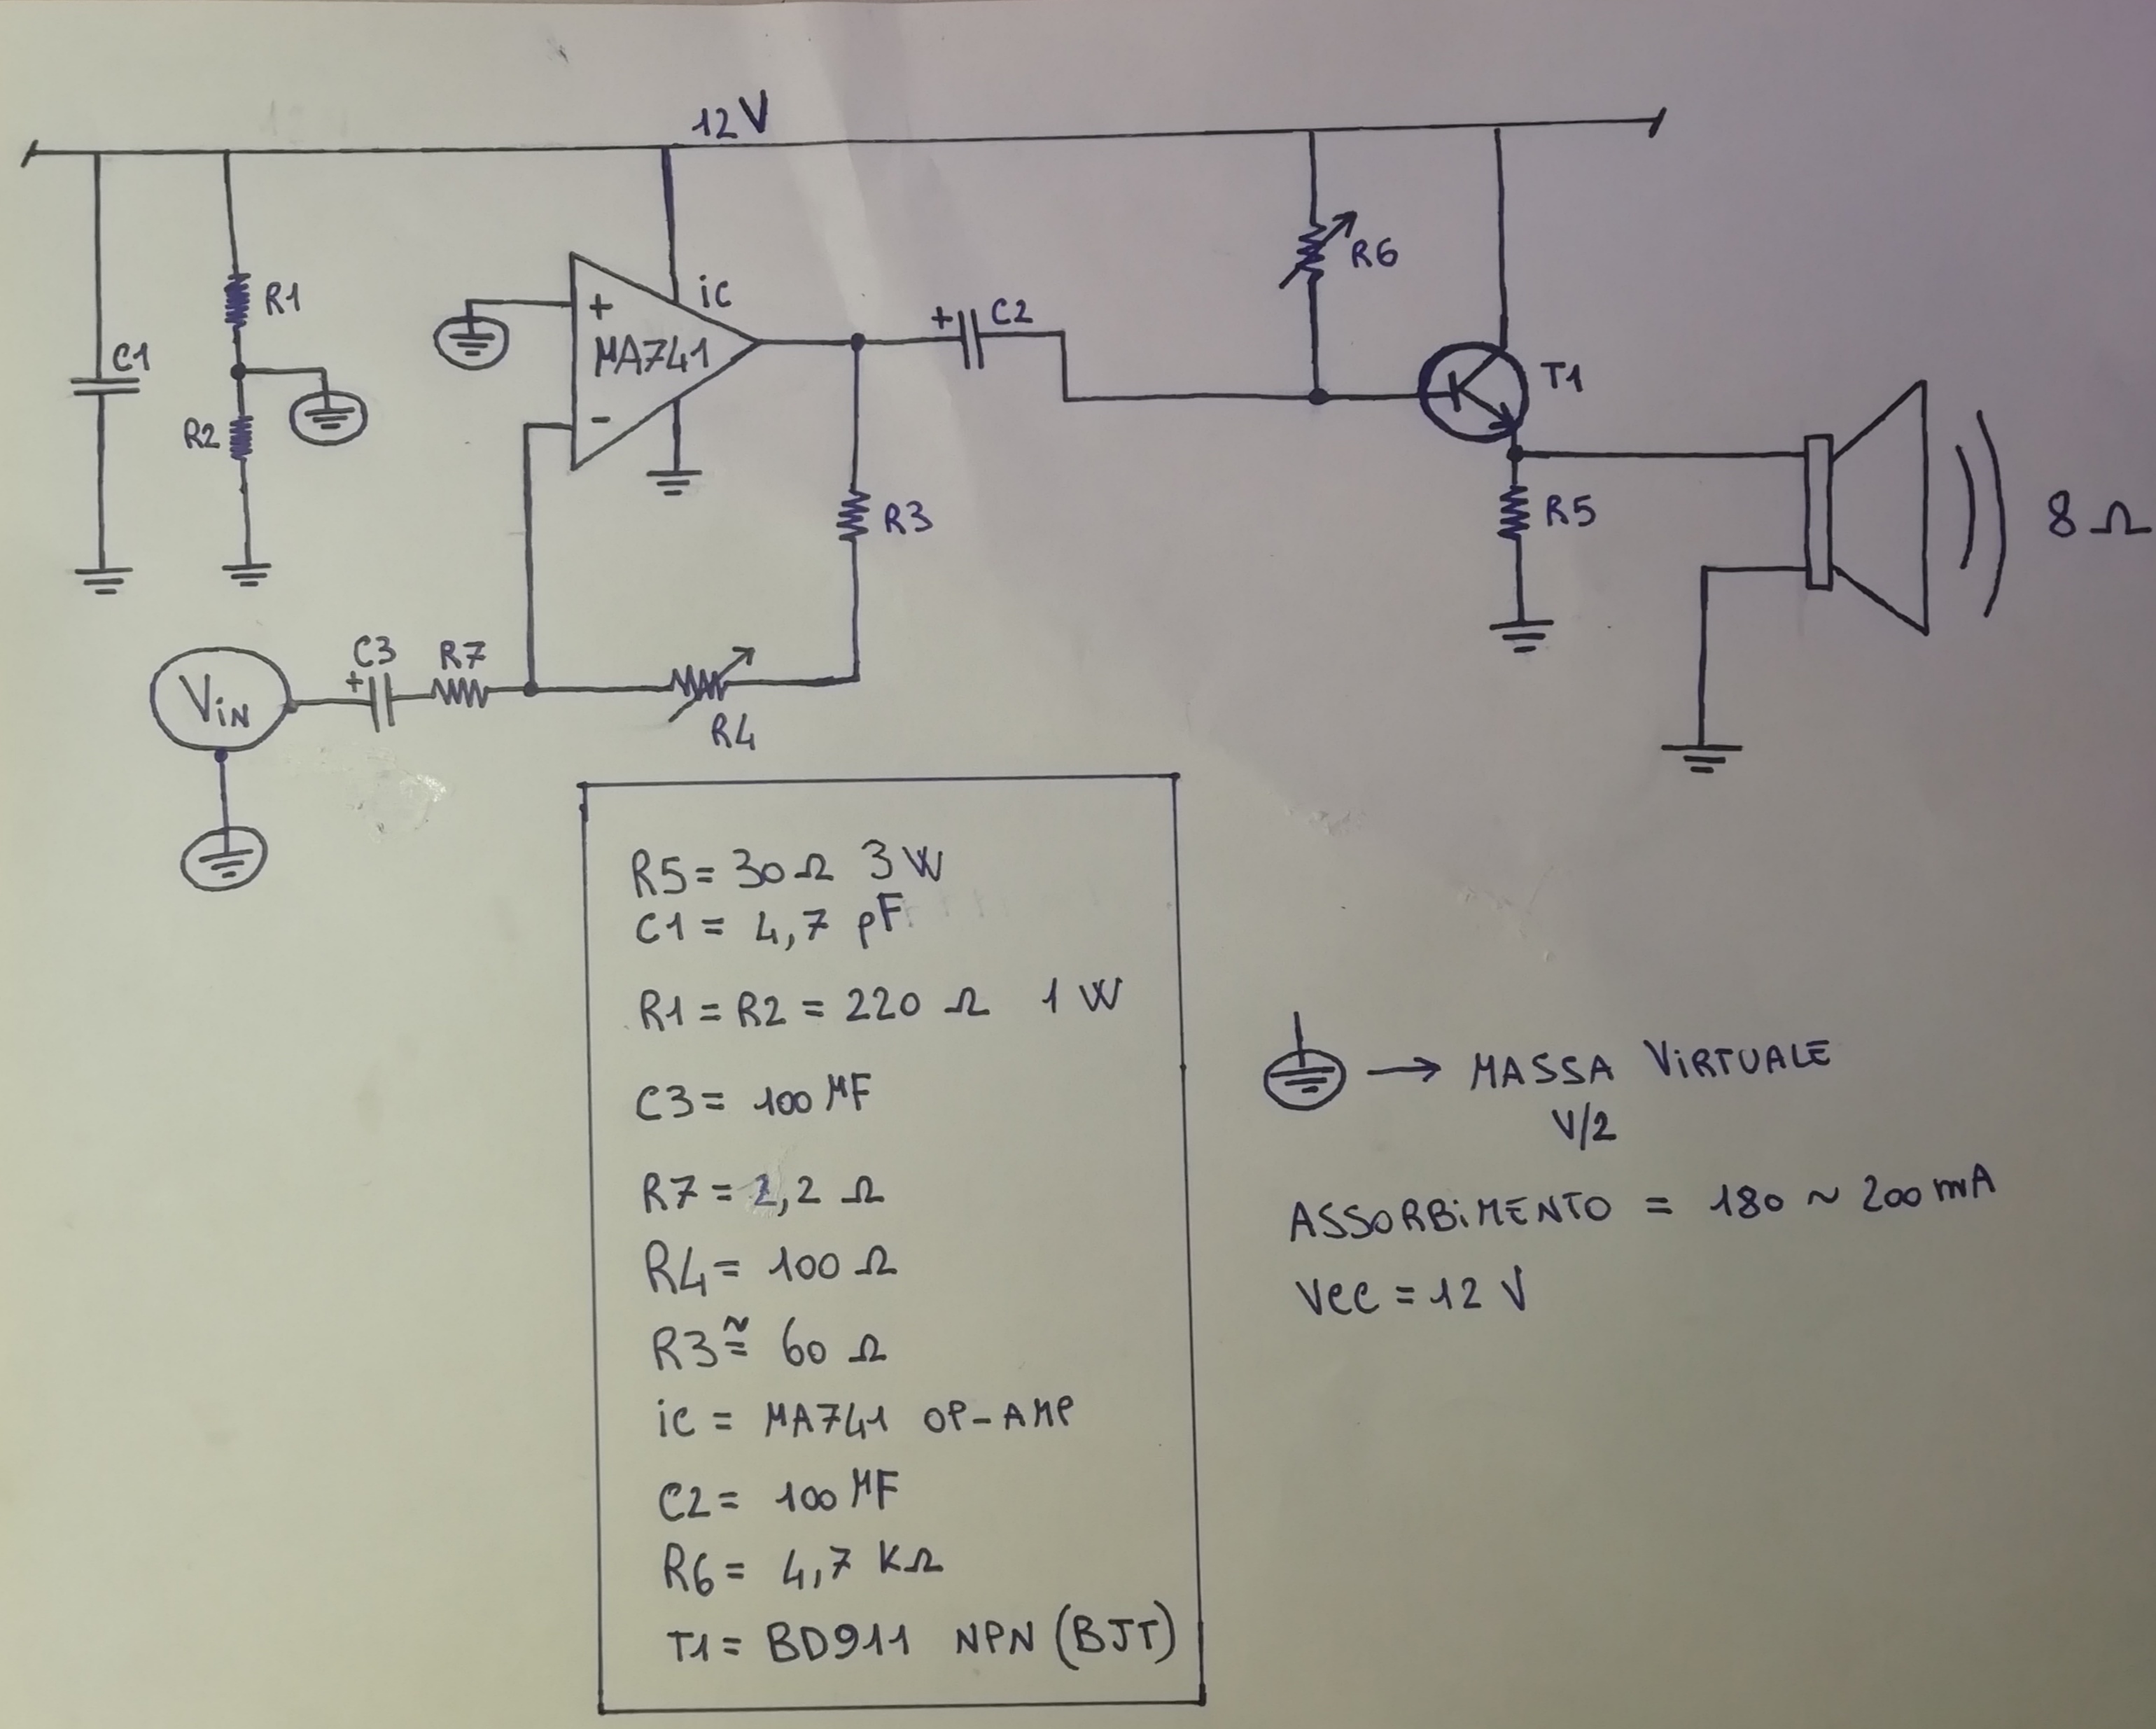 12V
R1
C1
R2
+
ic
MA741
-
+
C2
R6
T1
R3
R5
8 Ω
C3
R7
+
ViN
R4
R5 = 30 Ω 3 W
C1 = 4,7 pF
R1 = R2 = 220 Ω 1 W
C3 = 100 MF
R7 = 2,2 Ω
R4 = 100 Ω
R3 ≅ 60 Ω
ic = MA741 OP-AMP
C2 = 100 MF
R6 = 4,7 KΩ
T1 = BD911 NPN (BJT)
→ MASSA ViRTUALE
V/2
ASSORBiMENTO = 180 ~ 200 mA
Vcc = 12 V